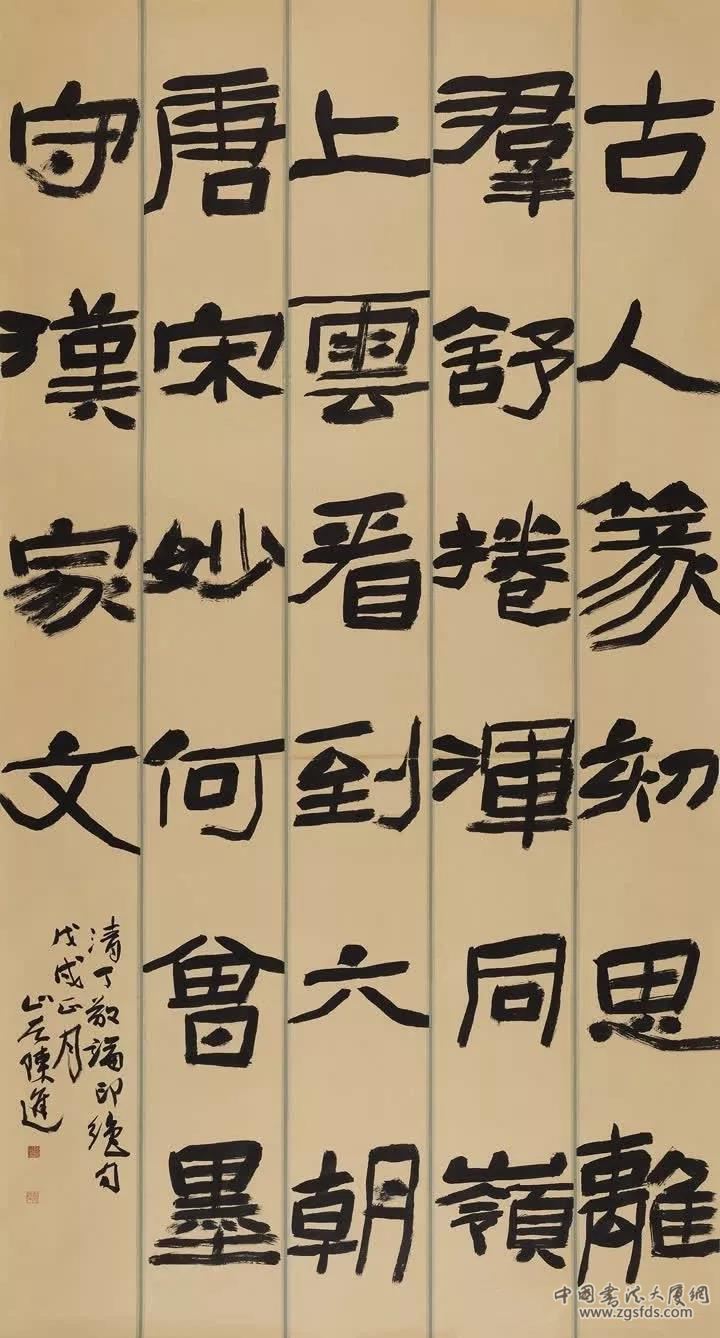 古人篆刻思離
羣舒捲渾同嶺
上雲看到六朝
唐宋妙何曾墨
守漢家文
清丁敬論印絕句
戊戌正月
山谷陳進
中國書法大厦網
www.zgsfds.com